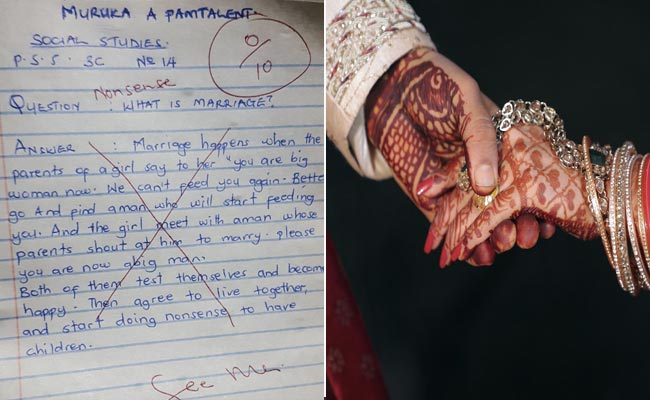 MURUKA A PAMTALENT.
SOCIAL STUDIES.
0/10
P.S.S. 3C No 14
Nonsense
QUESTION : WHAT IS MARRIAGE?
ANSWER : Marriage happens when the
parents of a girl say to her "you are big
woman now. We can't feed you again. Bette
go And find aman who will start feeding
you. And the girl meet with aman whose
parents shout at him to marry. please
you are now abig man.
Both of them test themselves and become
happy. Then agree to live together,
and start doing nonsense to have
children.
See Me.